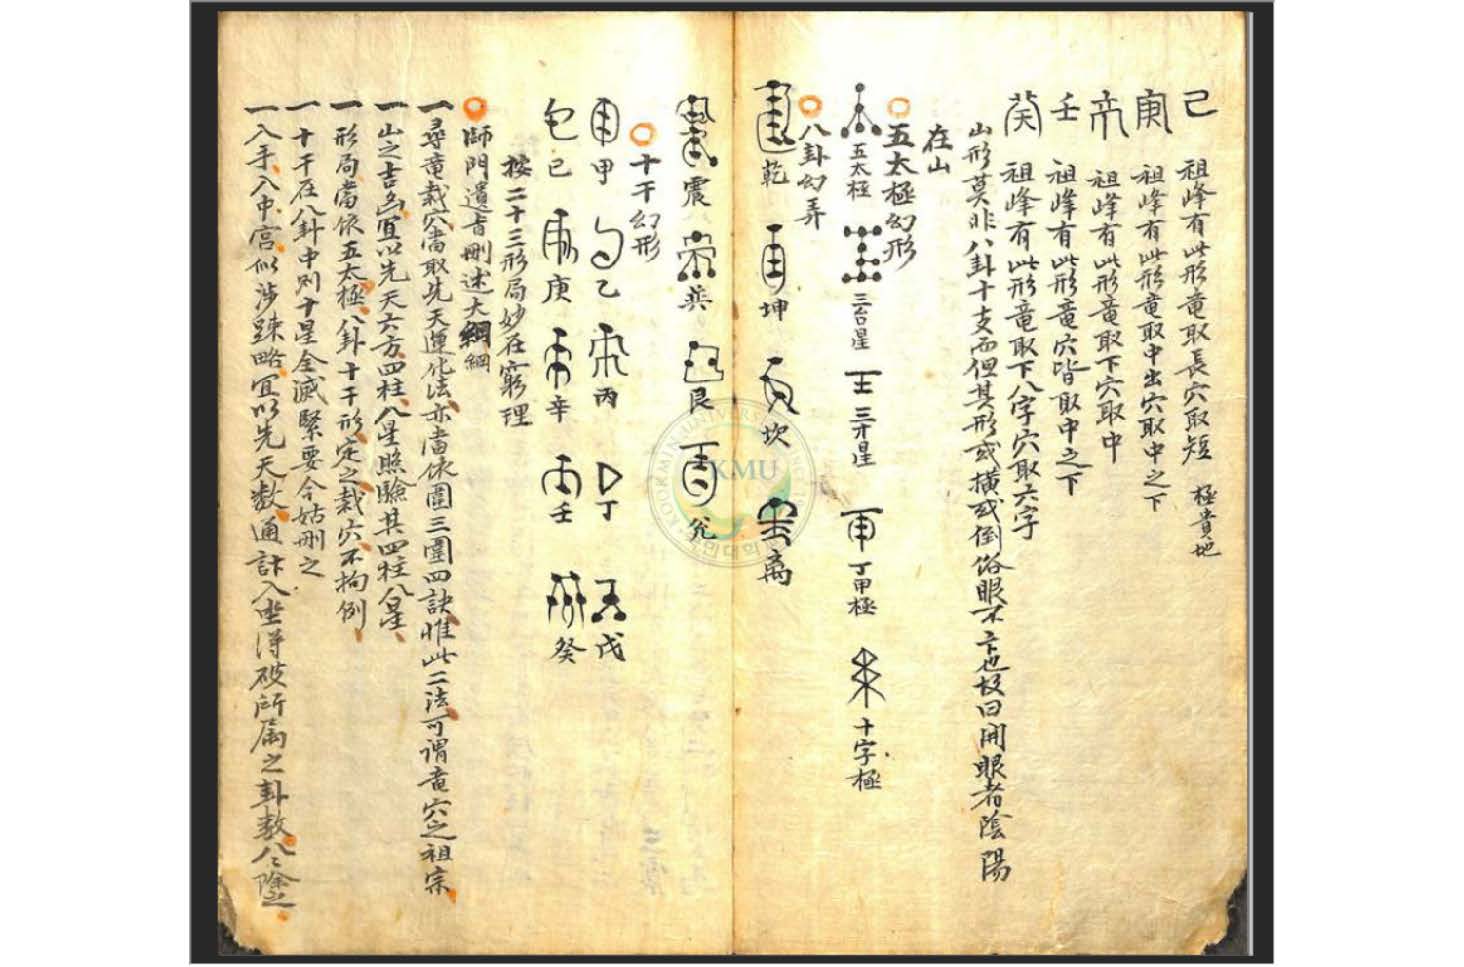 己 祖峰有此形竜取長穴取短 極貴地
庚 祖峰有此形竜取中出穴取中之下
辛 祖峰有此形竜取下穴取中
壬 祖峰有此形竜穴皆取中之下
癸 祖峰有此形竜取下八字穴取六字
山形莫非八卦十支而但其形或橫或倒俗眼不卞也故曰開眼者陰陽
在山
五太極幻形
五太極 三台星 三才星 丁甲極 十字極
八卦幻弄
乾 坤 坎 离
震 巽 艮 兊
十干幻形
甲 乙 丙 丁 戊
己 庚 辛 壬 癸
按二十三形局妙在窮理
師門遺旨刪述大綱 綱
一尋竜裁穴當取先天運化法亦當依圖三圍四訣惟此二法可謂竜穴之祖宗
一山之吉凶宜以先天六方四柱八星照驗其四柱八星
一形局當依五太極八卦十干形定之裁穴不拘例
一十干在八卦中則十星全减緊要今姑刪之
一入手入中宮似涉踈略宜以先天数通計入坐得破所属之卦数八八除之
KOOKMIN UNIVERSITY
KMU
국민대학